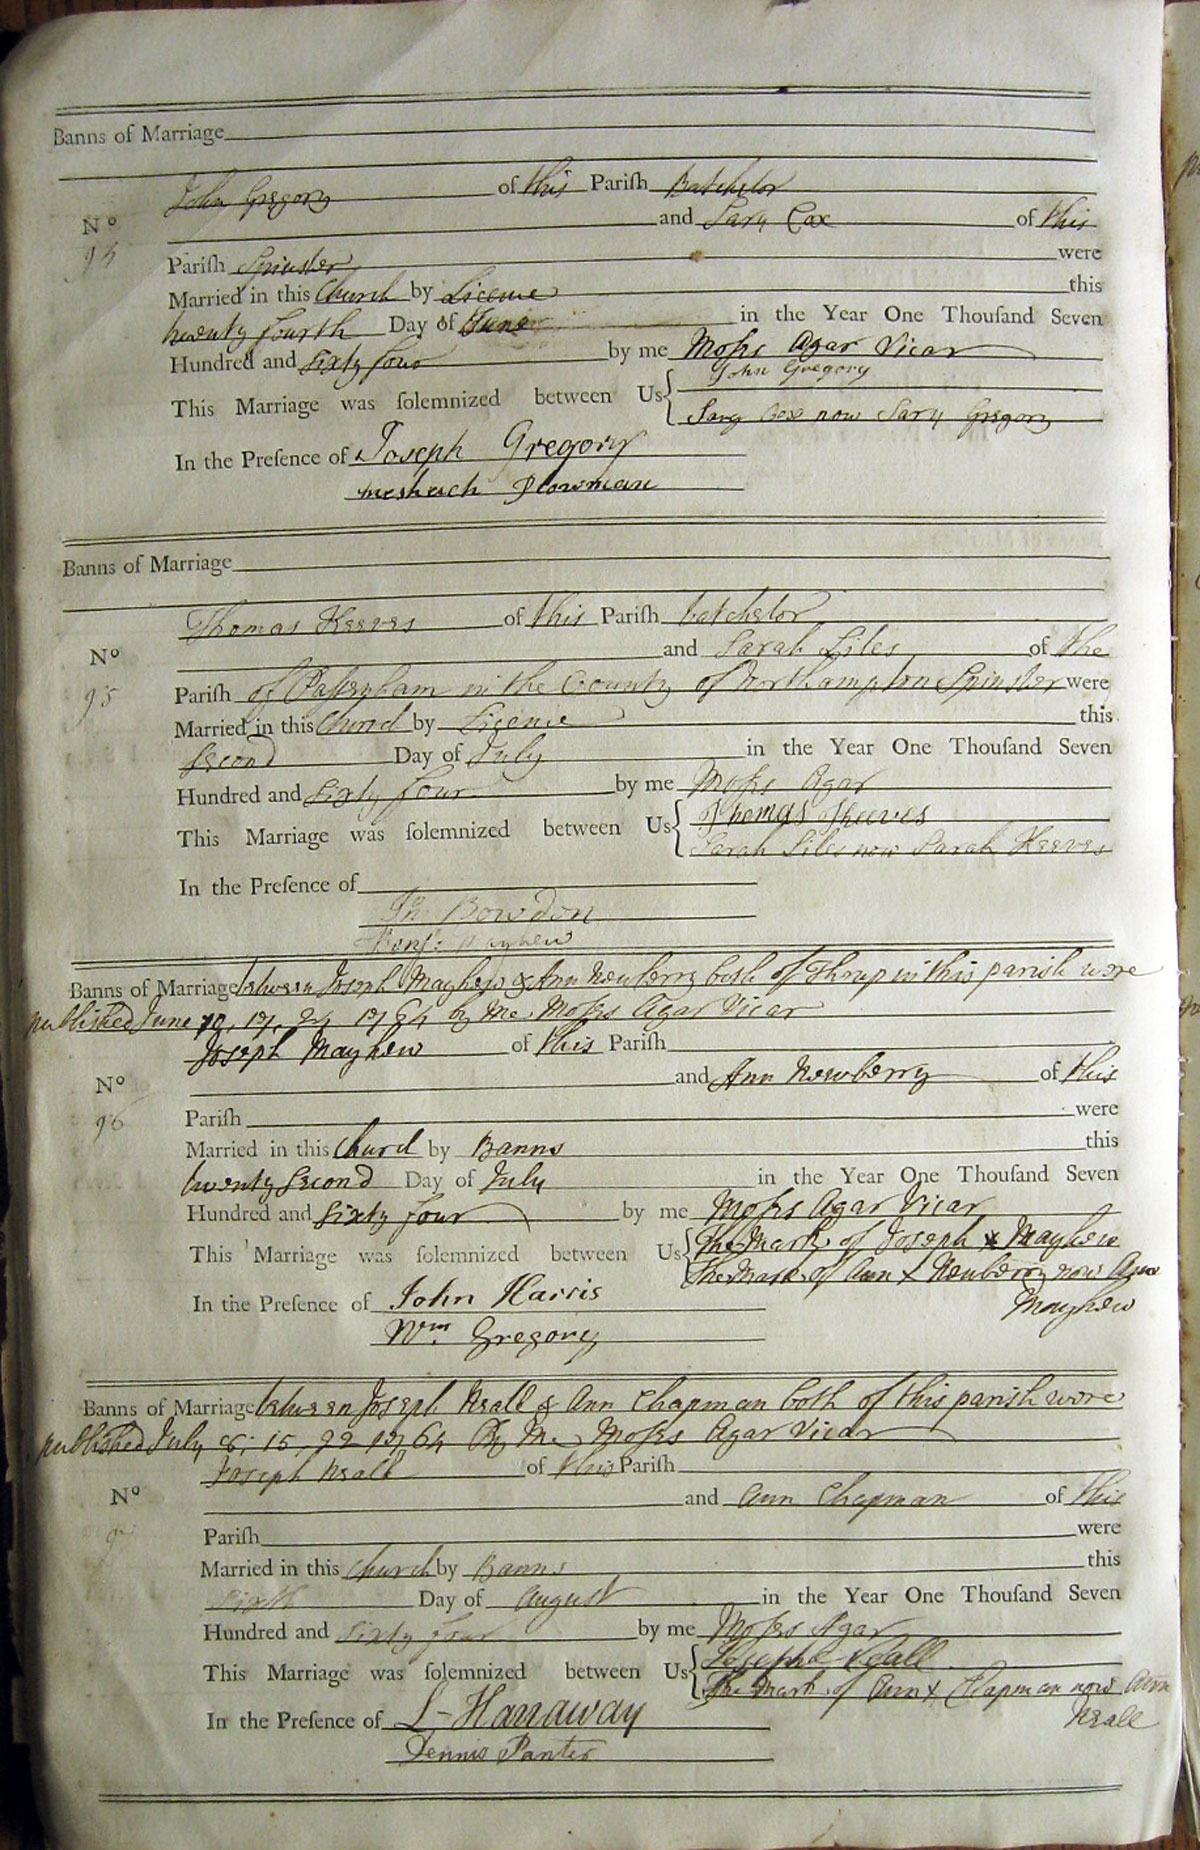 Banns of Marriage
John Gregory of this Pariſh Batchelor
Nº and Sary Cox of this
94 Pariſh Spinster were
Married in this Church by Licence this
twenty fourth Day of June in the Year One Thouſand Seven
Hundred and sixty four by me Moses Agar Vicar
John Gregory
This Marriage was ſolemnized between Us
Sary Cox now Sary Gregory
In the Preſence of Joseph Gregory
meshech Plowman
Banns of Marriage
Thomas Keeves of this Pariſh batchelor
Nº and Sarah Liles of the
95 Pariſh of in the County of Northampton Spinster were
Married in this Church by Licence this
Second Day of July in the Year One Thouſand Seven
Hundred and sixty four by me Moses Agar
This Marriage was ſolemnized between Us Thomas
Sarah Liles now Sarah Keeves
In the Preſence of
Jn Bowdon
Benj: Mayhew
Banns of Marriage between Joseph Mayhew & Ann Newberry both of Thrup in this parish were
published June 10, 17, 24 1764 by me Moses Agar Vicar
Joseph Mayhew of this Pariſh
Nº and Ann Newberry of this
96 Pariſh were
Married in this Church by Banns this
twenty second Day of July in the Year One Thouſand Seven
Hundred and sixty four by me Moses Agar Vicar
This Marriage was ſolemnized between Us The Mark of Joseph x Mayhew
The Mark of Ann x Newberry now Ann
Mayhew
In the Preſence of John Harris
Wm Gregory
Banns of Marriage between Joseph Neall & Ann Chapman both of this parish were
published July 8, 15, 22 1764 By Me Moses Agar Vicar
Joseph Neall of this Pariſh
Nº and Ann Chapman of this
Pariſh were
Married in this Church by Banns this
Sixth Day of August in the Year One Thouſand Seven
Hundred and sixty four by me Moses Agar
This Marriage was ſolemnized between Us Joseph Neall
The Mark of Ann x Chapman now Ann
Neall
In the Preſence of L Hanaway
Dennis Panter